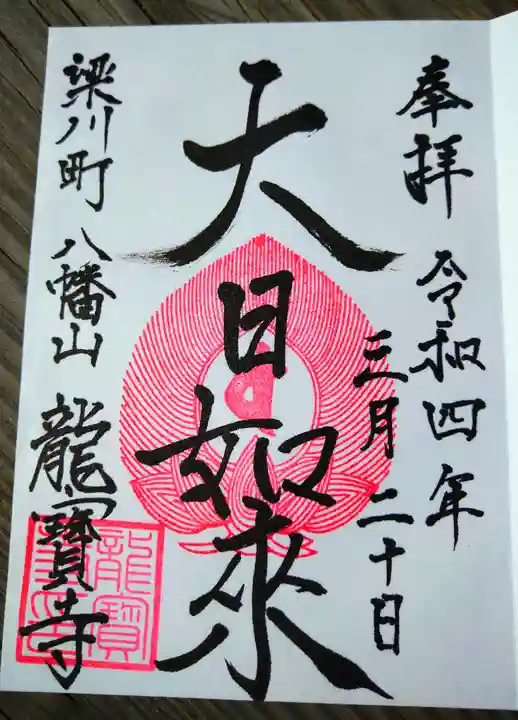 奉拝 令和四年
三月二十日
大日如来
梁川町 八幡山 龍寳寺
龍寳